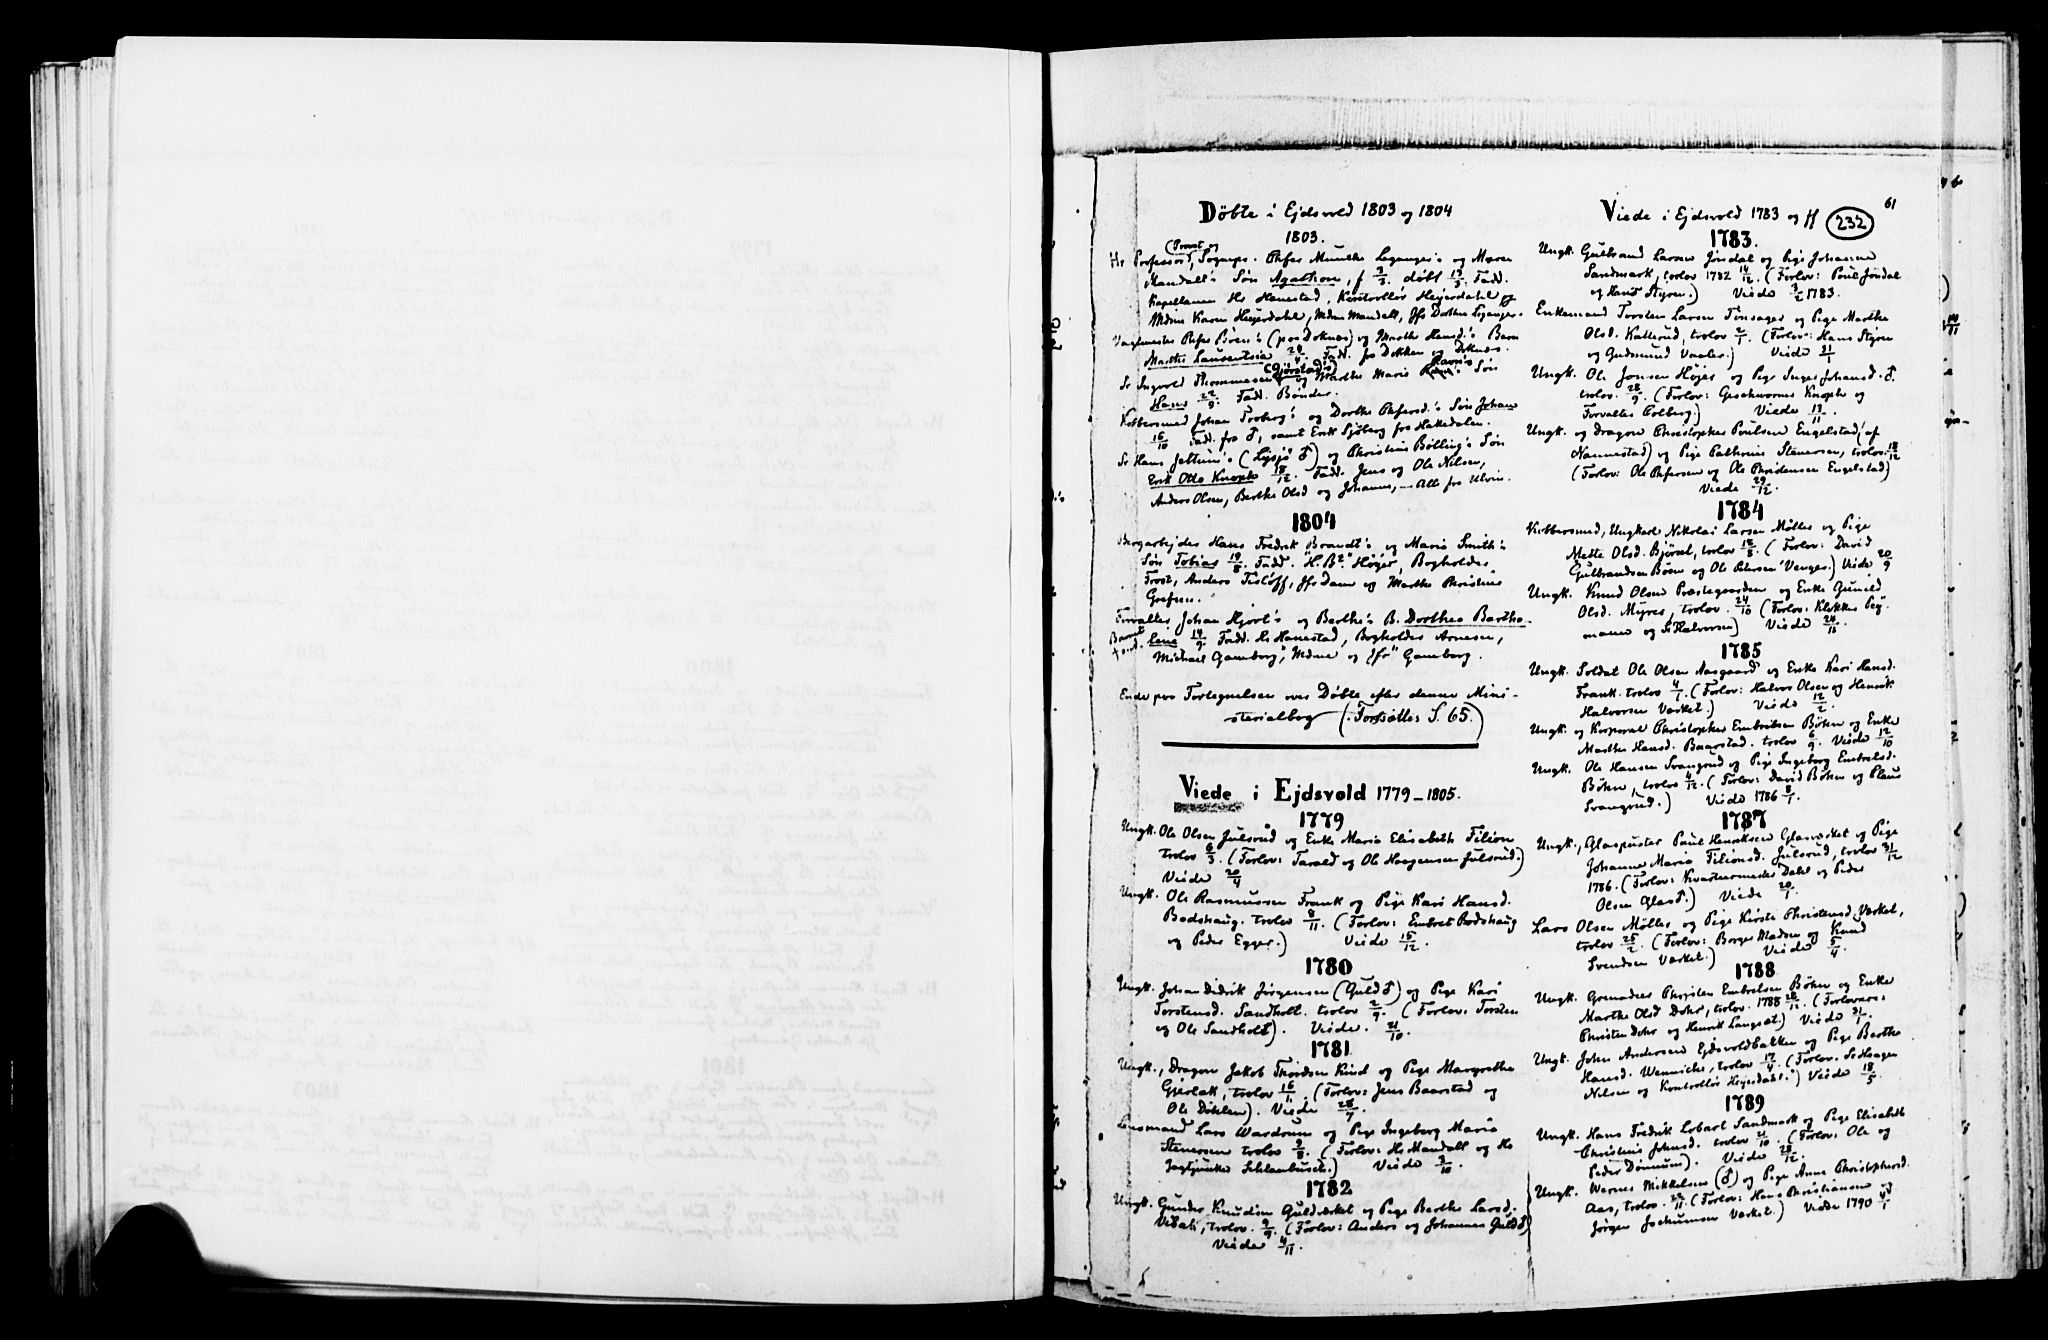 Döbte i Ejdsvold 1803 og 1804
1803.
(Provst og
Hr Professor, Sognepr. Chrfer Munthe Leganger's og Maren
Mandall's Søn Agathon, f 3/3. döbt 13/5. Fadd.
Kapellanen Hr Hanestad, Kontrollör Heyerdahl og
Mdme Karen Heyerdahl, Mdme Mandall, Jfr Dorthea Leganger.
Vagtmester Chrfer Börn's (paa Doknæs) og Marthe Hansd.'s Barn
Marthe Laurentsia 24/4. Fadd. fra Dokken og Doknæs.
(Gjörstad's) Harris
Sr Ingvold Thommasen og Marthe Marie Søn
Hans 22/9. Fadd. Bönder.
Kobbersmed Johan Troberg's og Dorthe Chrfersd.'s Søn Johan
16/10 Fadd. fra ♂, samt Erik Sjöberg fra Hakedalen.
Sr Hans Jettum's (Lysjö ♂) og Christine Bölling's Søn
Erik Otto Knoph 18/12. Fadd. Jens og Ole Nilsen,
Anders Olsen, Berthe Olsd og Johanne, — Alle fra Ulvin.
1804
Bergarbejder Hans Fredrik Brandt's og Maria Smith's
Søn Tobias 19/8. Fadd. "H. Br." Höyer, Bogholder
Frost, Anders Tislöff, Jfr Dam og Marthe Christine
Grefsen.
Forvalter Johan Hjort's og Berthe's B. Dorthea Bartho-
Barnet
lene 14/9 Fadd. Hr Hanestad, Bogholder Arnesen,
Michael Gamborg, "Mdme og Jfr" Gamborg.
Ende paa Fortegnelsen over Döbte efter denne Mini-
sterialbog (Fortsættes S. 65.)
Viede i Ejdsvold 1779–1805.
1779
Ungk. Ole Olsen Julsrud og Enke Maria Elisabeth Filion
trolov 6/3. (Forlov: Tarald og Ole Haagensen Julsrud.)
Viede 20/4
Ungk. Ole Rasmussen Frank og Pige Kari Hansd.
Bodshaug. trolov 8/11. (Forlov: Embret Bodshaug
og Peder Egger.) Viede 15/12.
1780
Ungk. Johan Didrik Jörgensen (Guld ♂) og Pige Kari
Torstensd. Sandholt. trolov 2/9. (Forlov: Torsten
og Ole Sandholt). Viede. 21/10.
1781
Ungk., Dragon Jakob Thordsen Lind og Pige Margrethe
Gjerlak, trolov 16/11. (Forlov: Jens Baarstad og
Ole Döhlen). Viede 28/7.
Lensmand Lars Wardrum og Pige Ingeborg Maria
Stenersen trolov 3/8. (Forlov: Hr Mandall og Hr
Jagtjunker Schlanbusch.) Viede 3/10.
1782
Ungk. Gunder Knudsen Guldværket og Pige Berthe Larsd.
Visali, trolov. 2/9. (Forlov: Anders og Johannes Guld ♂)
Viede 4/11.
61
Viede i Ejdsvold 1783 og ff 232
1783.
Ungk. Gulbrand Larsen Jöndal og Pige Johanne
Sandmark, trolov 1782 14/12. (Forlov: Poul Jöndal
og Hans Styren.) Viede 3/2 1783.
Enkemand Torsten Larsen Tönsager og Pige Marthe
Olsd. Katterud, trolov 2/1. (Forlov: Hans Styren
og Gudmund Vaaler.) Viede 31/1
Ungk. Ole Jonsen Höjer og Pige Inger Johansd. ♂.
trolov. 28/9. (Forlov: Geschworner Knoph og
Forvalter Colberg.) Viede 13/11.
Ungk. og Dragon Christopher Poulsen Engelstad (af
Nannestad) og Pige Cathrine Stenersen, trolov. 18/12
(Forlov: Ole Chrfersen og Ole Christensen Engelstad)
Viede 29/12.
1784
Kobbersmed, Ungkarl Nikolai Larsen Möller og Pige
Mette Olsd. Björnt, trolov 18/8. (Forlov: David
Gulbrandsen Böen og Ole Petersen Venger.) Viede 20/9
Ungk. Knud Olsen Præstegaarden og Enke Gunild
Olsd. Myrer, trolov. 24/10 (Forlov: Klokker Ny-
mann og Sr Halvorsen) Viede 24/11.
1785
Ungk. Soldat Ole Olsen Aasgaard og Enke Kari Hansd.
Frank. trolov 4/1. (Forlov: Halvor Olsen og Henrik
Halvorsen Værket.) Viede 12/2.
Ungk. og Korporal Christopher Embretsen Böhn og Enke
Marthe Hansd. Baarstad. trolov 6/9. Viede 12/10
Ungk. Ole Hansen Svangrud og Pige Ingeborg Embretsd.
Böhn, trolov 4/12. (Forlov: David Böhn og Claus
Svangrud.) Viede 1786 8/1.
1787
Ungk., Glaspuster Paul Henriksen Glasværket og Pige
Johanne Maria Filionsd. Julsrud, trolov 31/12
1786. (Forlov: Kvartermester Dahl og Peder
Olsen Glas ♂.) Viede 20/1.
Lars Olsen Möller og Pige Kirsti Christensd. Værket,
trolov 25/2. (Forlov: Borger Madsen og Knud
Svendsen Værket.) Viede 5/4.
1788
Ungk. Grenader Christen Embretsen Böhn og Enke
Marthe Olsd Dohr, trolov. 1788 28/12. (Forlovere:
Christen Dohr og Henrik Langset) Viede 31/1.
Ungk. John Andersen Ejdsvoldbakken og Pige Berthe
Hansd. Wennicher, trolov 17/4. (Forlov: Sr Hagen
Nilsen og Kontrollör Heyerdahl.) Viede 18/5.
1789
Ungk. Hans Fredrik Lobart Sandmark og Pige Elisabeth
Christine Johnsd. trolov 21/10. (Forlov: Ole og
Peder Dönnum). Viede 28/12.
Ungk. Werner Mikkelsen (♂) og Pige Anne Christophersd.
Aas, trolov. 22/11. (Forlov: Hans Christiansen og
Jörgen Jochumsen Værket.) Viede 1790 4/1